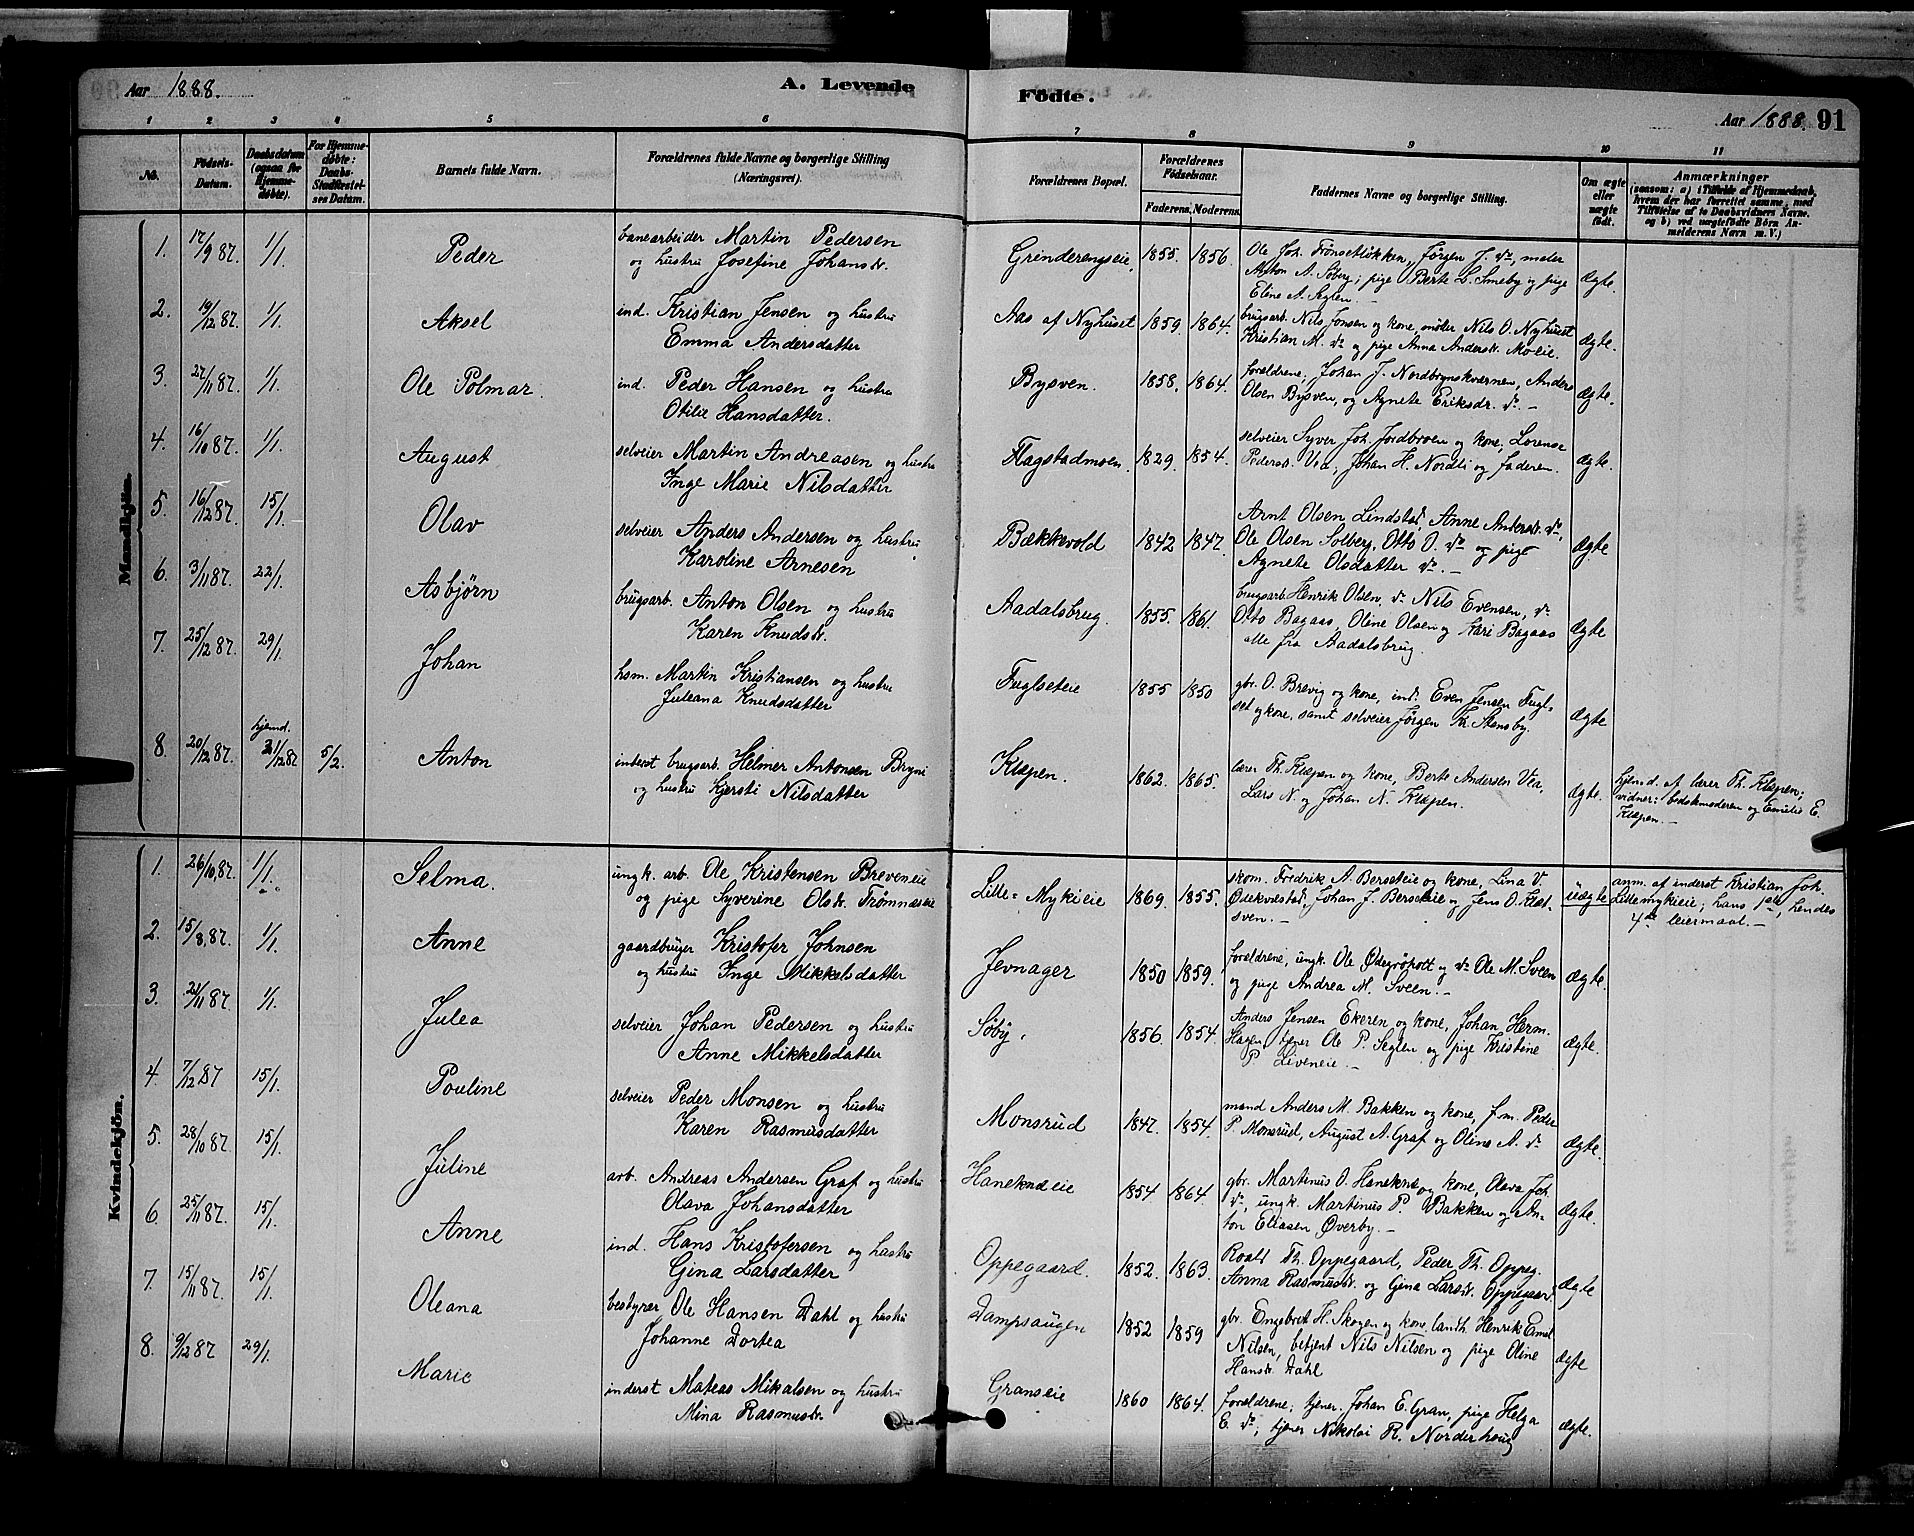 Aar 1888.
A. Levende
Födte.
Aar 1888. 91
1 2 3 4 5 6 7 8 9 10 11
No.
Födsels-Datum.
Daabsdatum (ogsaa for Hjemmedöbte).
For Hjemmedöbte: Daabs-Stadfæstelses Datum.
Barnets fulde Navn.
Forældrenes fulde Navne og borgerlige Stilling (Næringsvei).
Forældrenes Bopæl.
Forældrenes Födselsaar.
Faderens. Moderens.
Faddernes Navne og borgerlige Stilling.
Om ægte eller uægte födt.
Anmærkninger
(saasom: a) i Tilfælde af Hjemmedaab,
hvem der har forrettet samme, med
Tilföielse af to Daabsvidners Navne,
og b) ved uægtefödte Börn An-
melderens Navn m. V.)
Mandkjön.
1. 17/9 87. 1/1. Peder
banearbeider Martin Pedersen
og hustru Josefine Johansdr.
Grinderengseie, 1855. 1856.
Ole Joh. Frönsetlökken, Jörgen J. do, möler
Anton A. Söberg; pige Berte L. Smeby og pige
Eline A. Seglen. —
Ægte.
2. 19/12 87. 1/1. Aksel
ind. Kristian Jensen og hustru
Emma Andersdatter
Aas af Nyhuset 1859. 1864.
brugsarb. Nils Jonsen og kone, möler Nils O. Nyhuset
Kristian M. do og pige Anna Andersdr. Moeie.
Ægte.
3. 27/11 87. 1/1. Ole Polmar.
ind. Peder Hansen og hustru
Otilie Hansdatter.
Bysven. 1858. 1864.
forældrene, Johan J. Nordbrynskværnen, Anders
Olsen Bysven, og Agnete Eriksdr. do. —
Ægte.
4. 16/10 87. 1/1. August
selveier Martin Andreasen og hustru
Inge Marie Nilsdatter
Flagstadmoen. 1829. 1854.
selveier Syver Joh. Jordbroen og kone, Lorense
Pedersdr. Vea, Johan H. Nordli og faderen.
Ægte.
5. 16/12 87. 15/1. Olav
selveier Anders Andersen og hustru
Karoline Arnesen
Bækkevold 1842 1847.
Arnt Olsen Lindstad, Anne Andersdr. do,
Ole Olsen Solberg, Otto O. do og pige
Agnete Olsdatter do. —
Ægte
6. 3/11 87. 22/1. Asbjörn
brugsarb. Anton Olsen og hustru
Karen Knudsdr.
Aadalsbrug. 1855. 1861.
brugsarb Henrik Olsen, do Nils Evensen, do
Otto Bagaas, Oline Olsen og Kari Bagaas
alle fra Aadalsbrug.
Ægte
7. 25/12 87. 29/1. Johan
hsm. Martin Kristiansen og hustru
Juleana Knudsdatter
Fuglseteie 1855 1850
gbr. O. Brevig og kone, ind. Even Jensen Fugl-
set og kone, samt selveier Jörgen Kr. Stensby.
Ægte
8. 20/12 87. hjemd. 21/12 87 5/2. Anton
inderst brugsarb. Helmer Antonsen Bryni
og hustru Kjersti Nilsdatter
Klæpen. 1862. 1865.
lærer Th. Klæpen og kone, Berte Andersen Vea,
Lars N. og Johan N. Klæpen.
Ægte.
hjemd. af lærer Th. Klæpen;
vidner: bedstemoderen og Emilie E.
Klæpen. —
Kvindekjön.
1. 26/10 87. 1/1. Selma.
ungk. arb. Ole Kristensen Breveneie
og pige Syverine Olsdr. Frömnæseie
Lille-Mykieie 1869. 1855.
skom. Fredrik A. Berseteie og kone, Lina V.
Ödekvæstad, Johan J. Berseteie og Jens O. Klæt-
sven. —
uægte
anm. af inderst Kristian Joh.
Lillemykieie; hans 1ste, hendes
4de leiermaal. —
2. 15/8 87. 1/1. Anne
gaardbruger Kristofer Johnsen
og hustru Inge Mikkelsdatter
Jevnager 1850 1859.
forældrene, ungk. Ole Ödegröntt og do Ole M. Sveen
og pige Andrea M. Sveen. —
Ægte.
3. 21/11 87. 1/1. Julea
selveier Johan Pedersen og hustru
Anne Mikkelsdatter
Söby. 1856. 1854.
Anders Jensen Ekeren og kone, Johan Herm.
Hagen, tjener Ole P. Seglen og pige Kristine
P. Liveneie. —
Ægte.
4. 7/12 87 15/1. Pouline
selveier Peder Monsen og hustru
Karen Rasmusdatter
Monsrud 1847. 1854.
mand Anders M. Bakken og kone, f.m. Peder
P. Monsrud, August A. Graf og Oline A. do
Ægte.
5. 28/10 87. 15/1. Juline
arb. Andreas Andersen Graf og hustru
Olava Johansdatter
Hanekneeie 1854 1864.
gbr. Martinus O. Hanekne og kone, Olava Joh.
do, ungk. Martinus P. Bakken og An-
ton Eliasen Överby. —
Ægte.
6. 25/11 87. 15/1. Anne
ind. Hans Kristofersen og hustru
Gina Larsdatter
Oppegaard. 1852. 1863.
Roald Th. Oppegaard, Peder Th. Oppeg.
Anna Rasmusdr. og Gina Larsdr. Oppegaard.
Ægte
7. 15/11 87. 15/1. Oleana
bestyrer Ole Hansen Dahl og hustru
Johanne Dortea
Dampsaugen 1852 1859
gbr. Engebret H. Skogen og kone, landh. Henrik Emil
Nilsen, betjent Nils Nilsen og pige Oline
Hansdr. Dahl
Ægte
8. 9/12 87 29/1. Marie
inderst Mateas Mikalsen og hustru
Mina Rasmusdr.
Granseie 1860 1864.
forældrene; tjener Johan E. Gran, pige Helga
E. do; tjener Nikolai R. Norderhoug
Ægte.